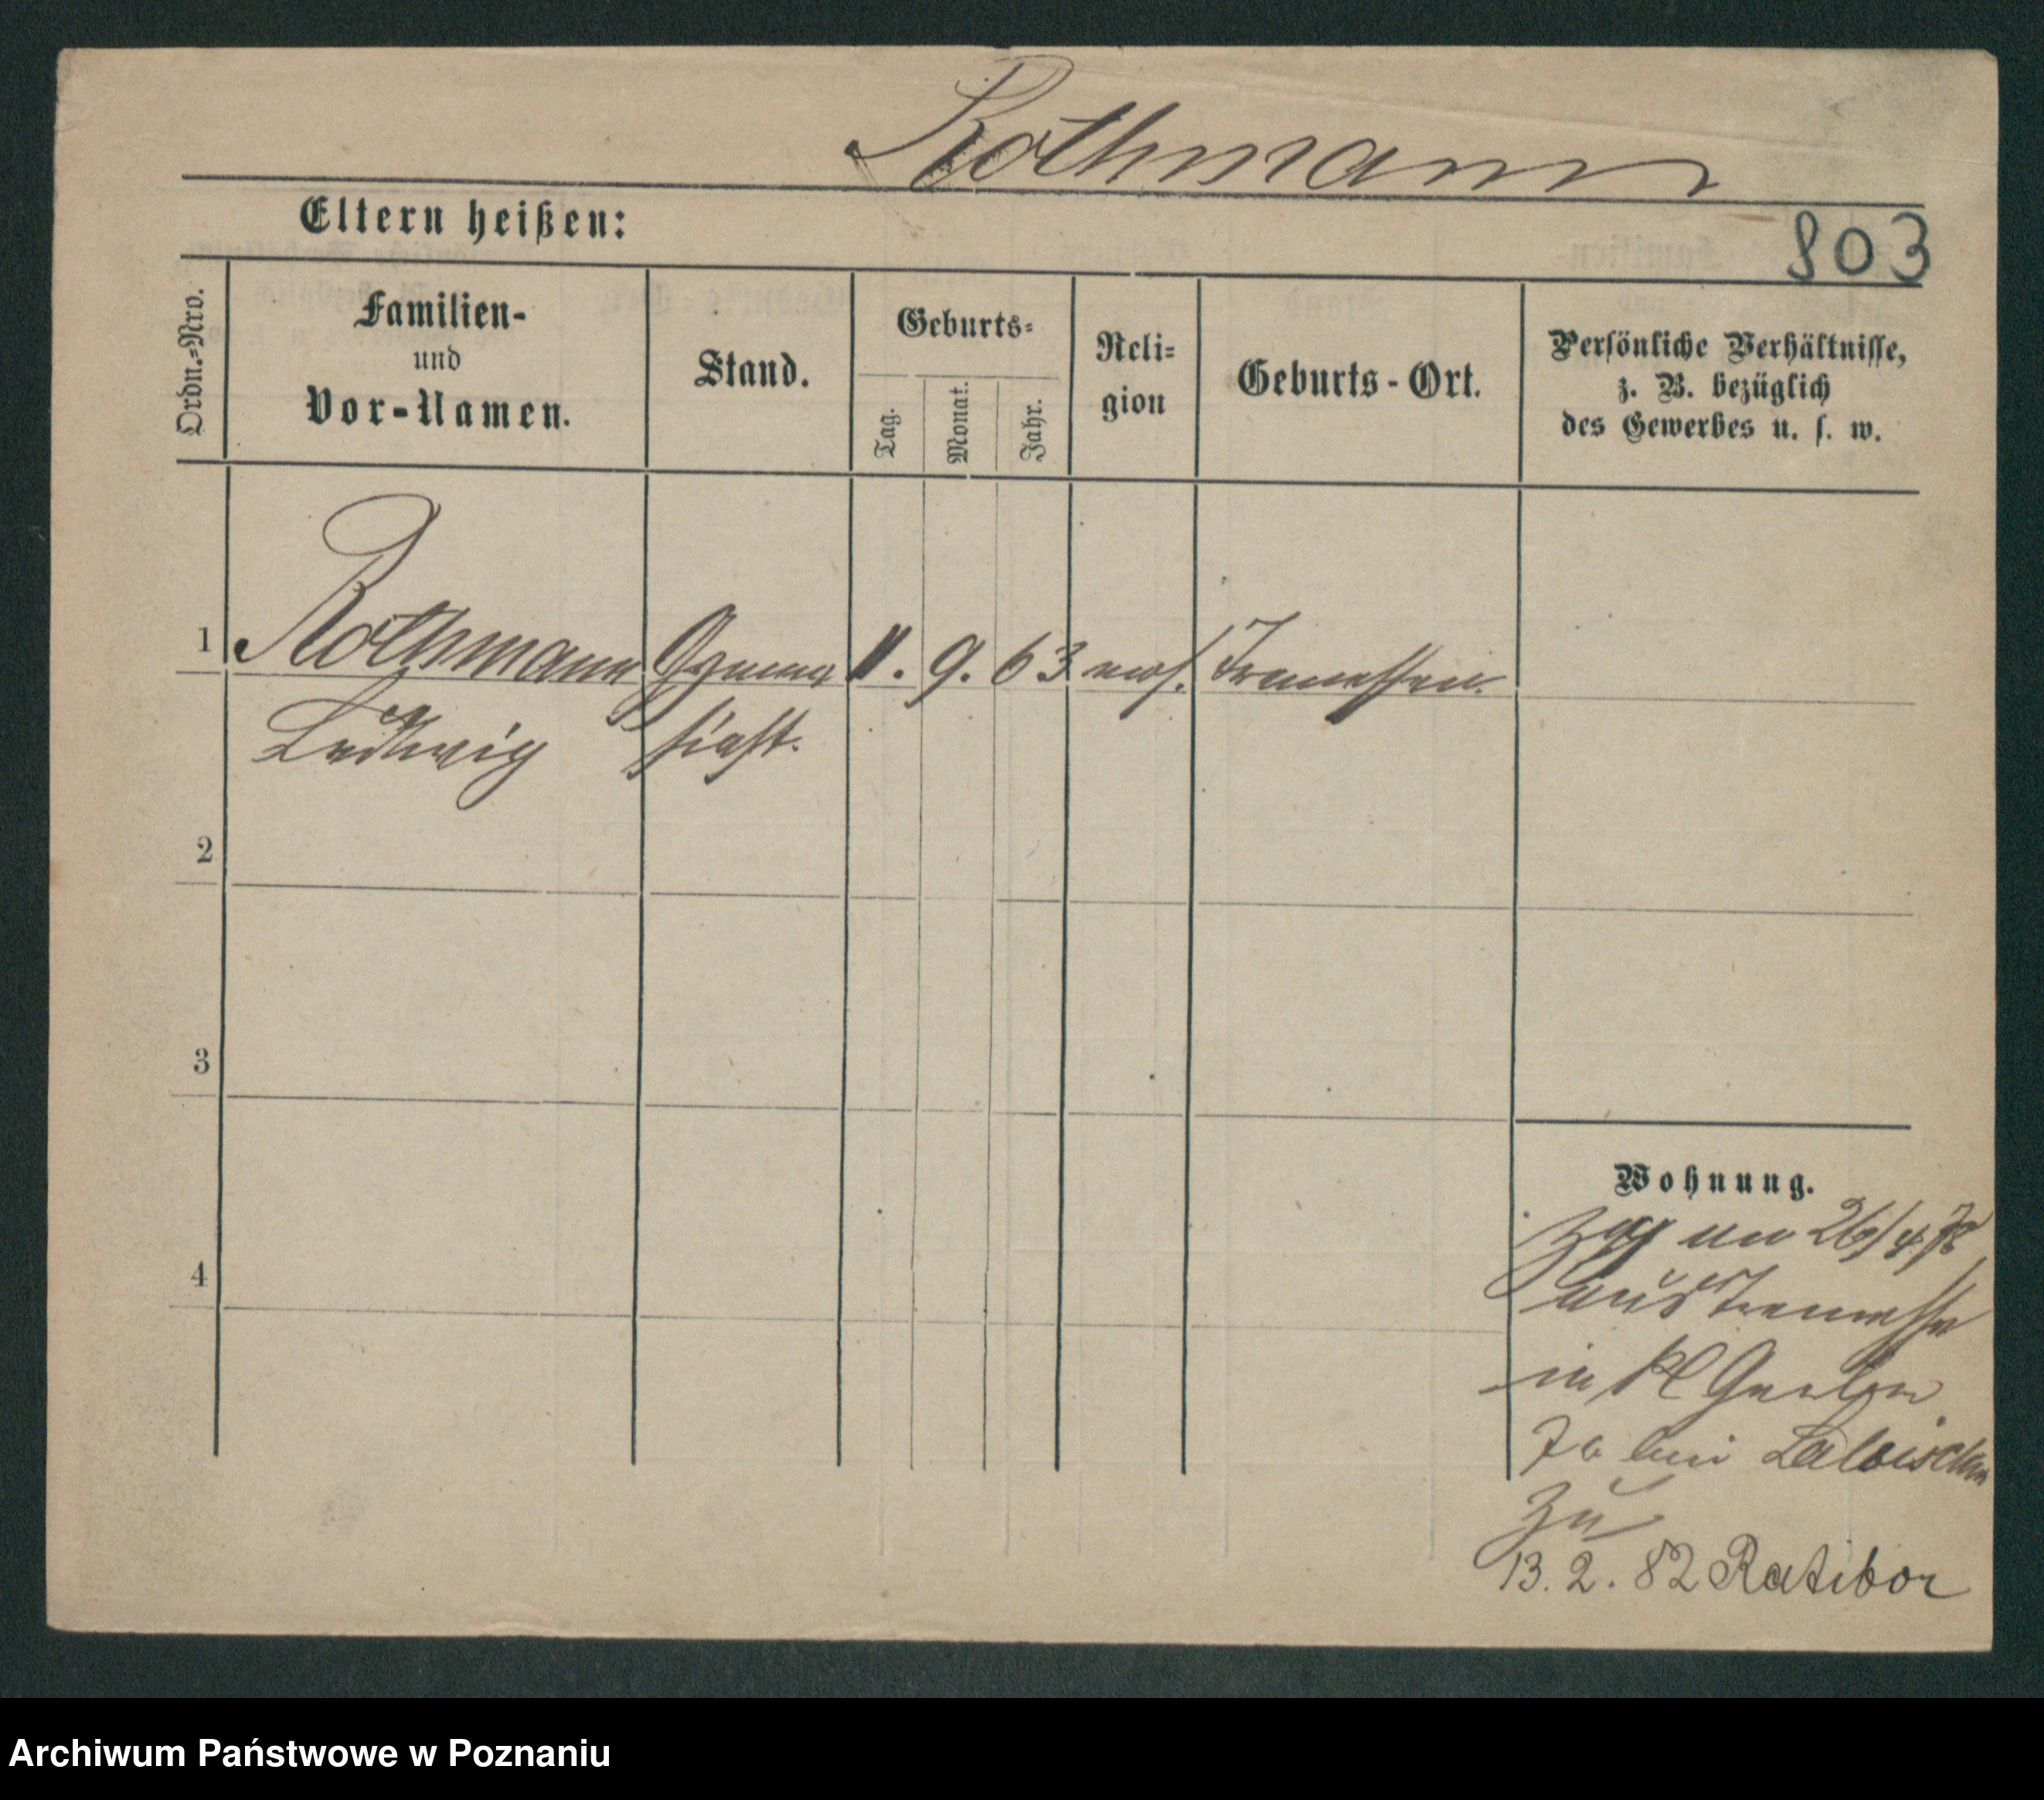 Rothmann
Eltern heißen:
803
Ordn.-Nro.
Familien-
und
Vor-Namen.
Stand.
Geburts-
Tag.
Monat.
Jahr.
Reli-
gion
Geburts-Ort.
Persönliche Verhältnisse,
z. B. bezüglich
des Gewerbes u. s. w.
1
Rothmann
Ludwig
Gymna
siast.
11. 9. 63
mos.
Tremessen.
2
3
4
Wohnung.
26/4 78
aus Tremessen
in Kl
bei Labischin
zu
13. 2. 82 Ratibor
Archiwum Państwowe w Poznaniu